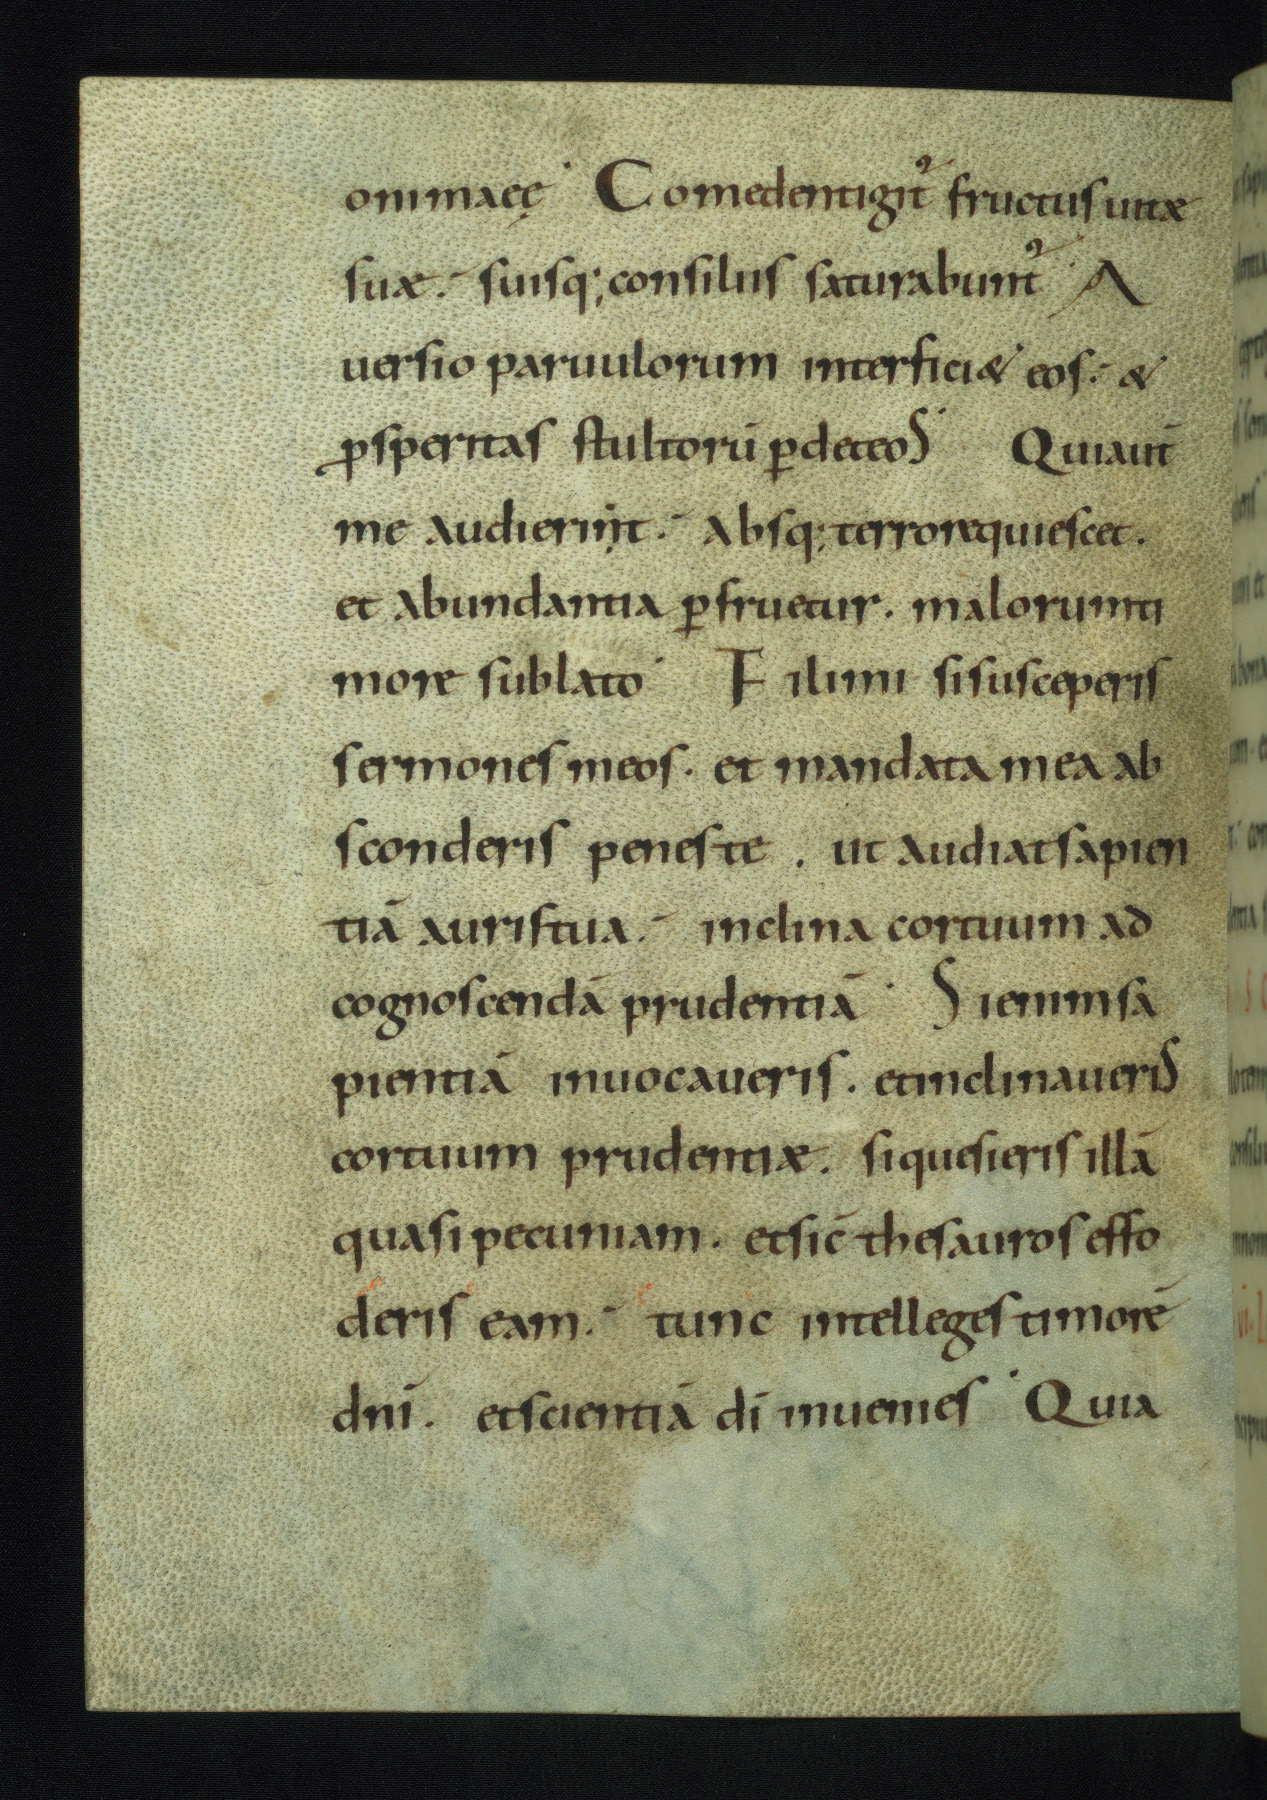 omni meaeę Comedent igit᷑ fructus uitæ
suæ. suisq; consiliis saturabunt᷑ A
uersio paruulorum interficiet eos. &
ꝓsperitas stultorū ꝑdet eos Qui aut̄
me audierint. absq; terrore quiescet.
et abundantia ꝑfruetur. malorum ti
more sublato Fili mi si susceperis
sermones meos. et mandata mea ab
sconderis penes te. ut audiat sapien
tiā auris tua. inclina cor tuum ad
cognoscendā prudentiā Si enim sa
pientiā inuocaueris. et inclinaueris
cor tuum prudentiæ. si quesieris illā
quasi pecuniam. et sic̄ thesauros effo
deris eam. tunc intelleges timorē
dnī. et scientiā dī inuenies Quia